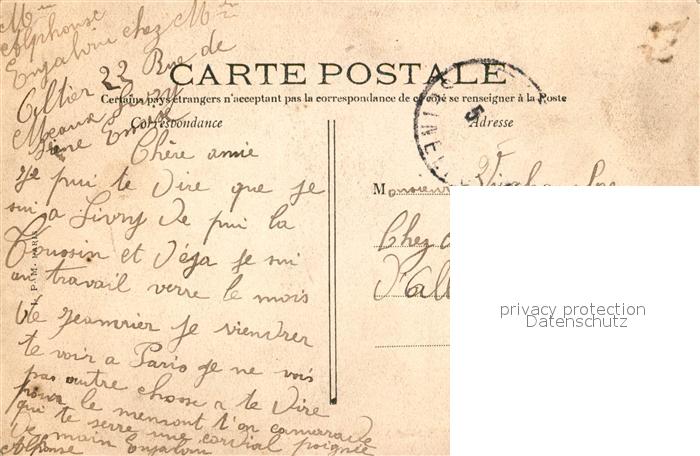 Mr
Alphonse
Enjalvin chez Mr
22 Rue de
Meaux Livry
Seine
CARTE POSTALE
Certains pays étrangers n'acceptant pas la correspondance de ce côté se renseigner à la Poste
Correspondance
Adresse
Chère amie
Je pui te dire que je
sui a Livry de pui la
Toussin et déja je sui
au travail verre le mois
de Jeamvier je viendrer
te voir a Paris je ne vois
pas autre chose a te dire
pour le menomt t'on camarade
qui te serre une cordial poignée
de main Enjalvin
Alfonse
Monsieur
Chez
privacy protection
Datenschutz